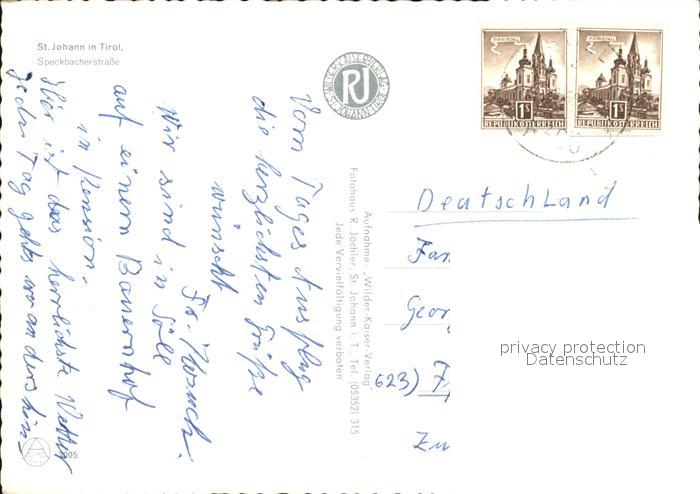 St. Johann in Tirol,
Speckbacherstraße
WILDER-KAISER-VERLAG
RJ
ST. JOHANN-TIROL
MARIAZELL
1S
REPUBLIK ÖSTERREICH
MARIAZELL
1S
REPUBLIK ÖSTERREICH
Vom Tages Ausflug
die herzlichsten Grüße
wünscht
Fr.
Wir sind in Söll
auf einem Bauernhof
in Pension.
Hier ist das herrlichste Wetter
jeden Tag gehts wo anders hin
Aufnahme: „Wilder-Kaiser-Verlag"
Fotohaus R. Jöchler, St. Johann i. T., Tel. (05352) 315
Jede Vervielfältigung verboten
Deutschland
Fam
Geor
623) F
Zu
privacy protection
Datenschutz